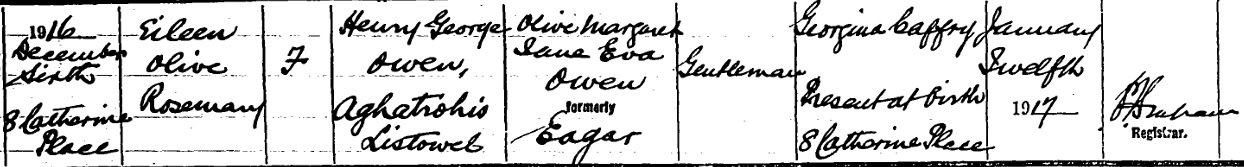 1916
December
Sixth
8 Catherine
Place
Eileen
Olive
Rosemary
F
Henry George
Owen,
Aghatrohis
Listowel
Olive Margaret
Jane Eva
Owen
formerly
Eagar
Gentleman
Georgina Caffry
Present at Birth
8 Catherine Place
January
Twelfth
1917
Registrar.